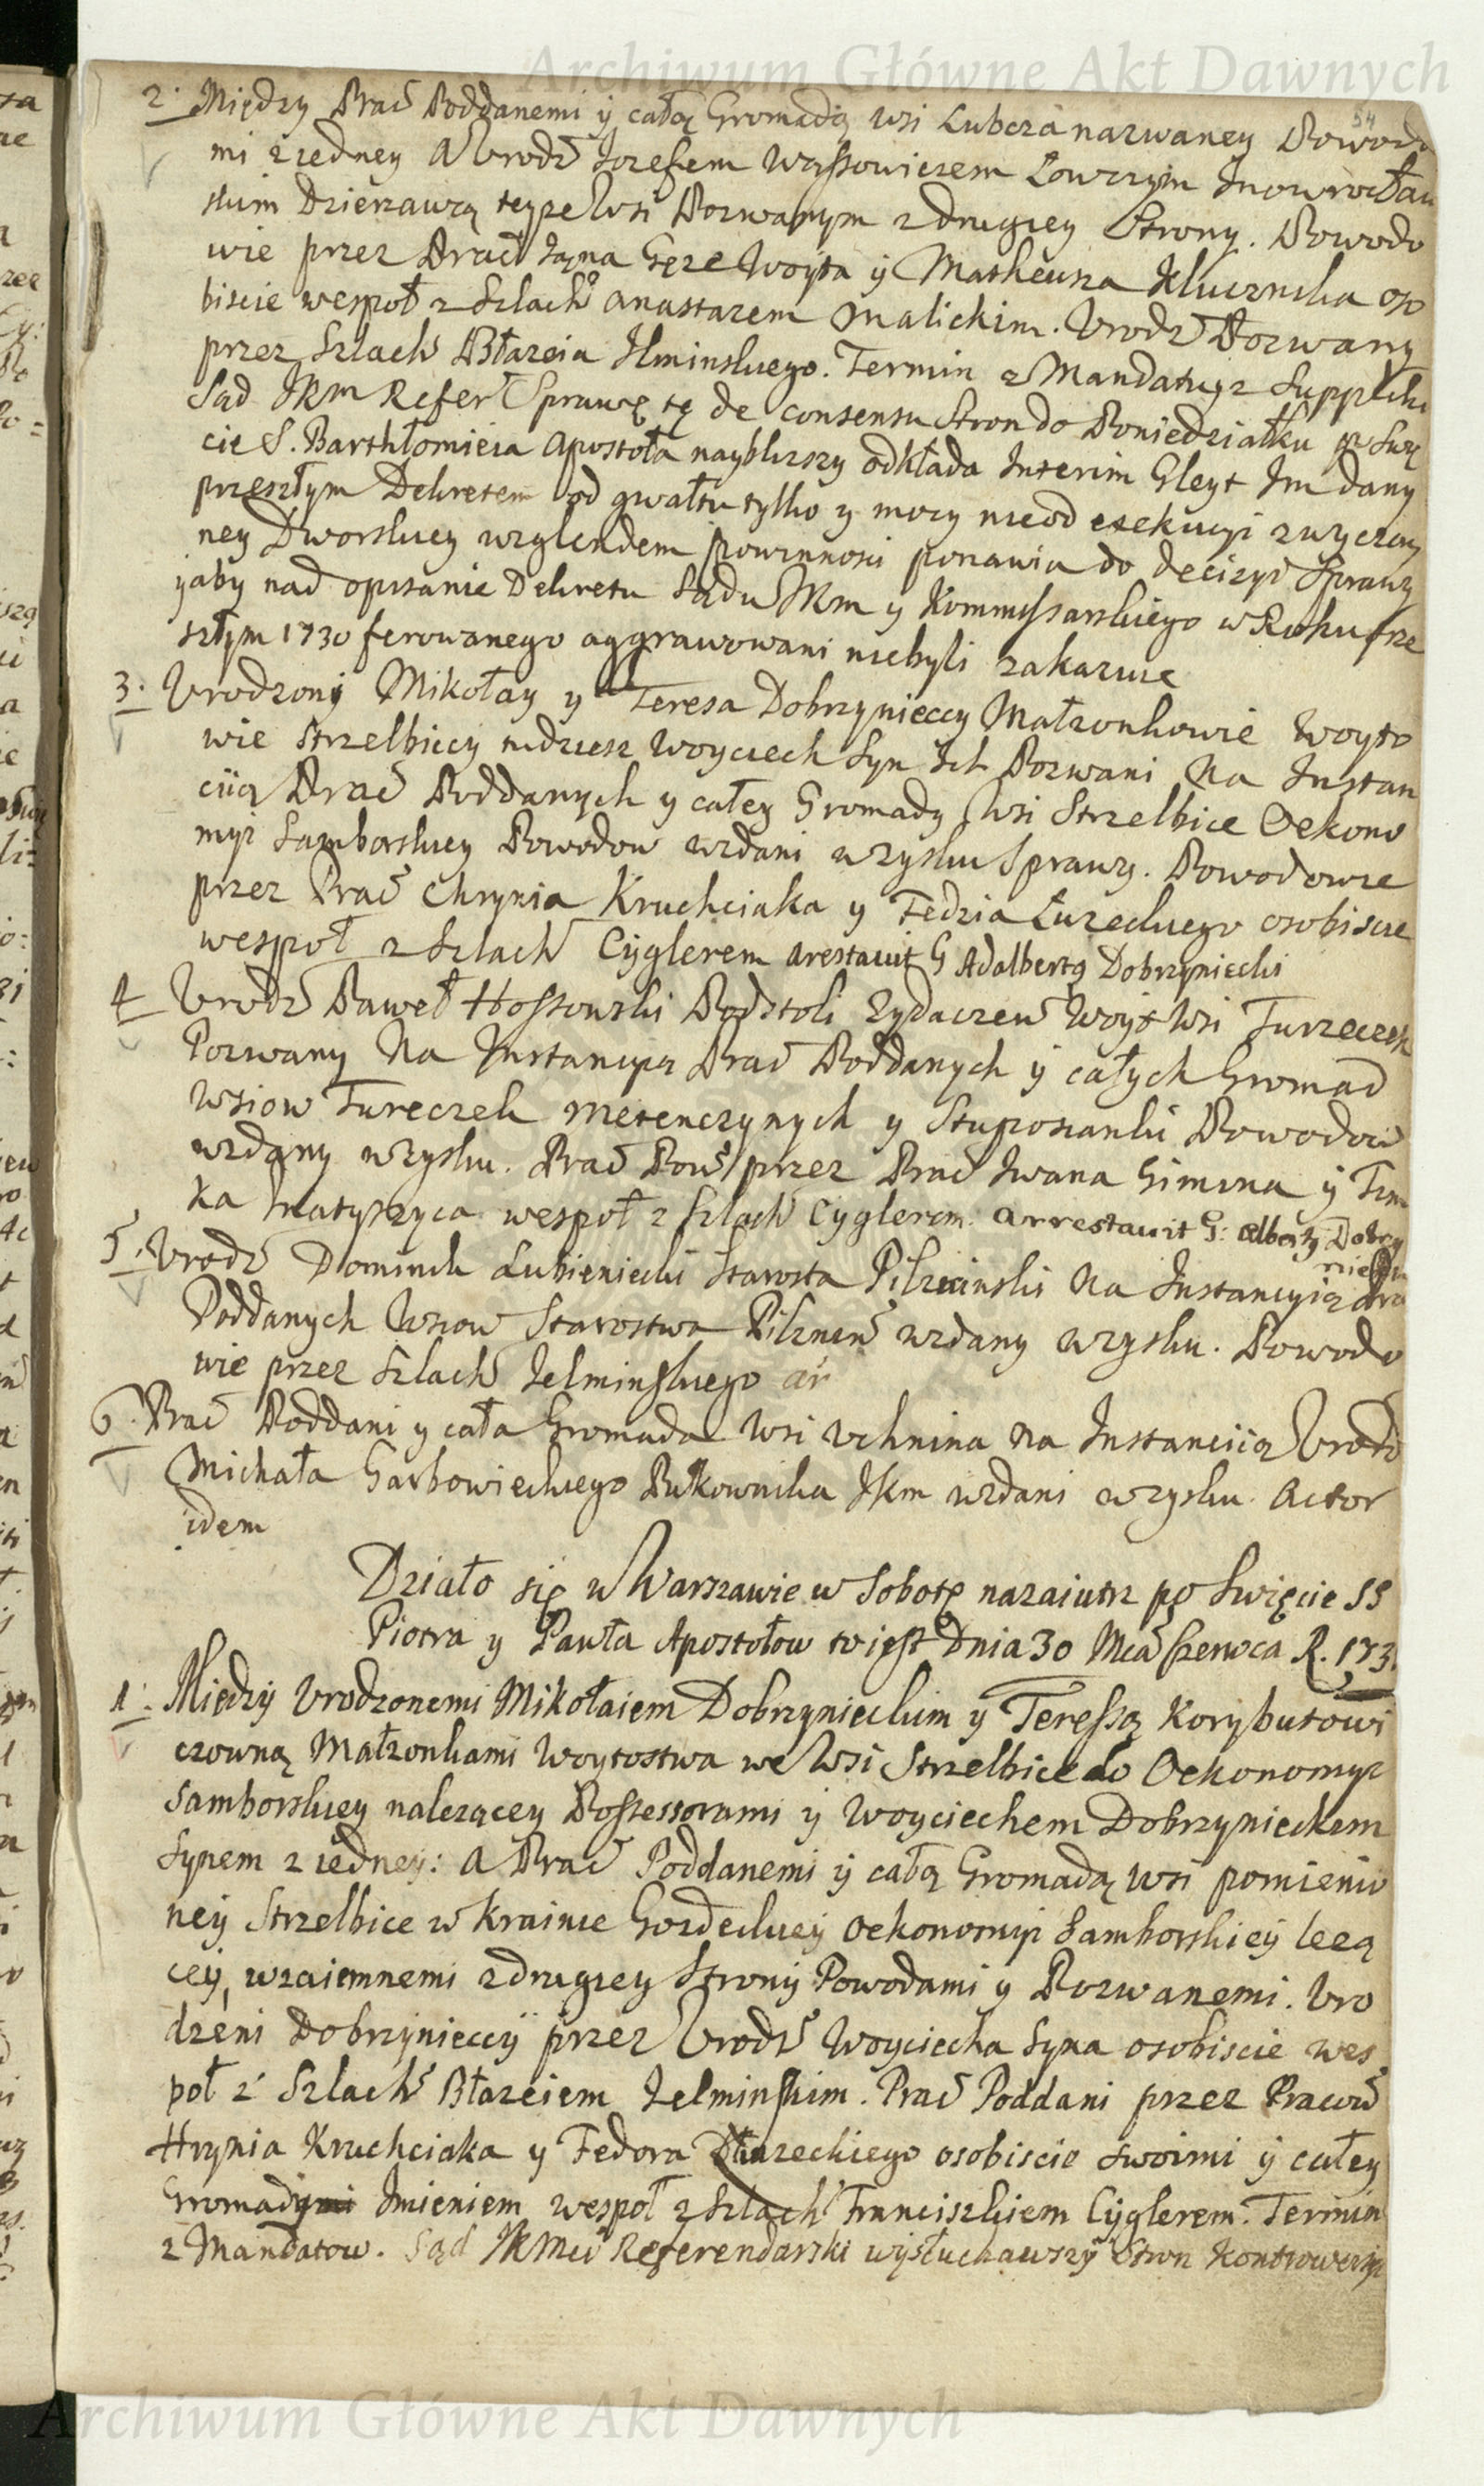 Archiwum Główne Akt Dawnych
54
2. Między Prac̃ Poddanemi ÿ całą Gromadą wsi Lubcza nazwaney Powoda
mi z iedney A Vrodz̃ Jozefem Wąssowiczem Łowczÿm Inowrocław
skim Dzierzawcą teyze Wsi Pozwanym z drugiey Strony. Powodo
wie przez Prac̃ Jana Gęze Woyta ÿ Matheusza Klucznika oso
biscie wespoł z Szlach̃ Anastazem Malickim. Vrodz̃ Pozwany
przez Szlach̃ Błazeia Jlminskiego. Termin z Mandatu yz Supplicki
Sąd JKm Refer̃ Sprawę tę de consensu Stron do Poniedziałku po Swię
cie S. Barthłomieia Apostoła nayblizszy odkłada Interim Gleyt Im dany
przeszłym Dekretem od gwałtu tylko y mocy nie od exekucyi zwyczay
ney Dworskiey względem powinnosci ponawia do decizyi Sprawy
y aby nad opisanie Dekretu Sądu JKm y Kommissarskiego w Roku prze
szłym 1730 ferowanego aggrawowani niebyli zakazuie
3. Vrodzony Mikołay y Teresa Dobrzynieccy Małzonkowie Woyto
wie Strzelbiccy tudziesz Woyciech Syn Ich Pozwani Na Instan
ciią Prac̃ Poddanych y całey Gromady Wsi Strzelbice Oekono
myi Samborskiey Powodow wzdani wzysku Sprawy. Powodowie
przez Prac̃ Chrynia Kruchciaka y Fedzia Łuzeckiego osobiscie
wespoł z Szlach̃ Cÿglerem arestavit G Adalbertg Dobrzyniecki
4 Vrodz̃ Paweł Hossowski Podstoli Zydaczew̃ Woyt Wsi Turzeczek
Pozwany Na Instancyą Prac̃ Poddanych ÿ całych Gromad
Wsiow Tureczek Metenczynych y Stuposianki Powodow
wzdany wzysku. Prac̃ Pow̃ przez Prac̃ Iwana Simona ÿ Tim
ka Matyszyca wespoł z Szlach̃ Cyglerem. Arrestavit G: Albertg Dobrzy
niecki
5. Vrodz̃ Dominik Lubieniecki Starosta Pilzninski Na Instancyią Prac̃
Poddanych Wsiow Starostwa Pilznen̄ wzdany wzysku. Powodo
wie przez Szlach̃ Jelminskiego ar̃
6. Prac̃ Poddani y cała Gromada Wsi Vchnina Na Instanciią Vrodz̃
Michała Garbowieckiego Pułkownika JKm wzdani wzysku. Actor
idem
Działo się w Warszawie w Sobotę nazaiutrz po Swięcie SS
Piotra y Pawła Apostołow to iest Dnia 30 Mca Czerwca R. 1731
1. Międzÿ Vrodzonemi Mikołaiem Dobrzynieckim y Teressą Korybutowi
czowną Małzonkami Woytostwa we Wsi Strzelbice do Oekonomyi
Samborskiey nalezącey Possessorami ÿ Woyciechem Dobrzynieckim
Synem z iedney: A Prac̃ Poddanemi ÿ całą Gromadą wsi pomienio
neÿ Strzelbice w Krainie Gordeckieÿ Oekonomÿi Samborskieÿ lezą
ceÿ, wzaiemnemi z drugiey Stronÿ Powodami y Pozwanemi. Vro
dzeni Dobrzÿnieccÿ przez Vrodz̃ Woyciecha Syna osobiscie wes
poł z Szlach̃ Błazeiem Jelminskim. Prac̃ Poddani przez Pracow̃
Hrynia Kruchciaka y Fedora Łuzeckiego osobiscie swoimi ÿ całey
Gromady Imieniem wespoł z Szlach̃ Franciszkiem Cÿglerem. Termin
z Mandatow. Sąd JKMci Referendarski wÿsłuchawszÿ Stron Kontrowersÿi
Archiwum Główne Akt Dawnych